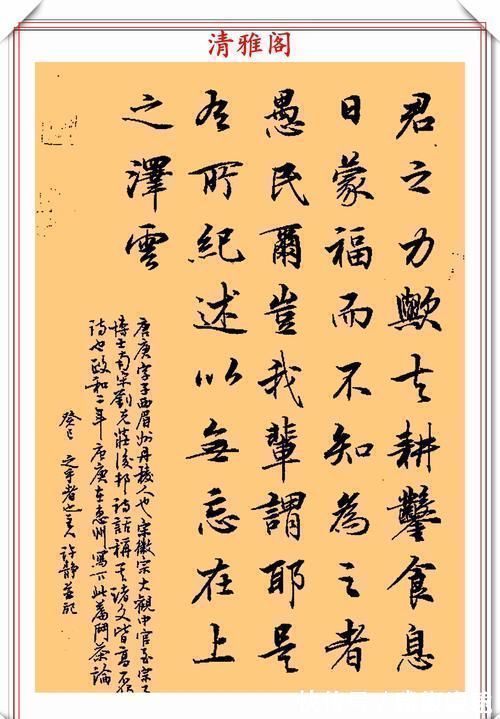 清雅阁
君之力歟夫耕鑿食息
日蒙福而不知為之者
愚民爾豈我輩謂耶是
有所紀述以無忘在上
之澤雲
唐庚字子西眉州丹棱人也宋徽宗大觀中官至宗子
博士南宋劉克莊後邨詩話稱其諸文皆高不獨
詩也政和二年唐庚在惠州寫下此篇鬥茶論
癸巳 之乎者也主人許靜並記
快传号